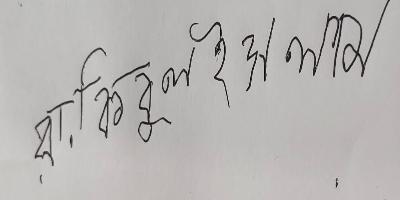 রাকিবুল ইসলাম